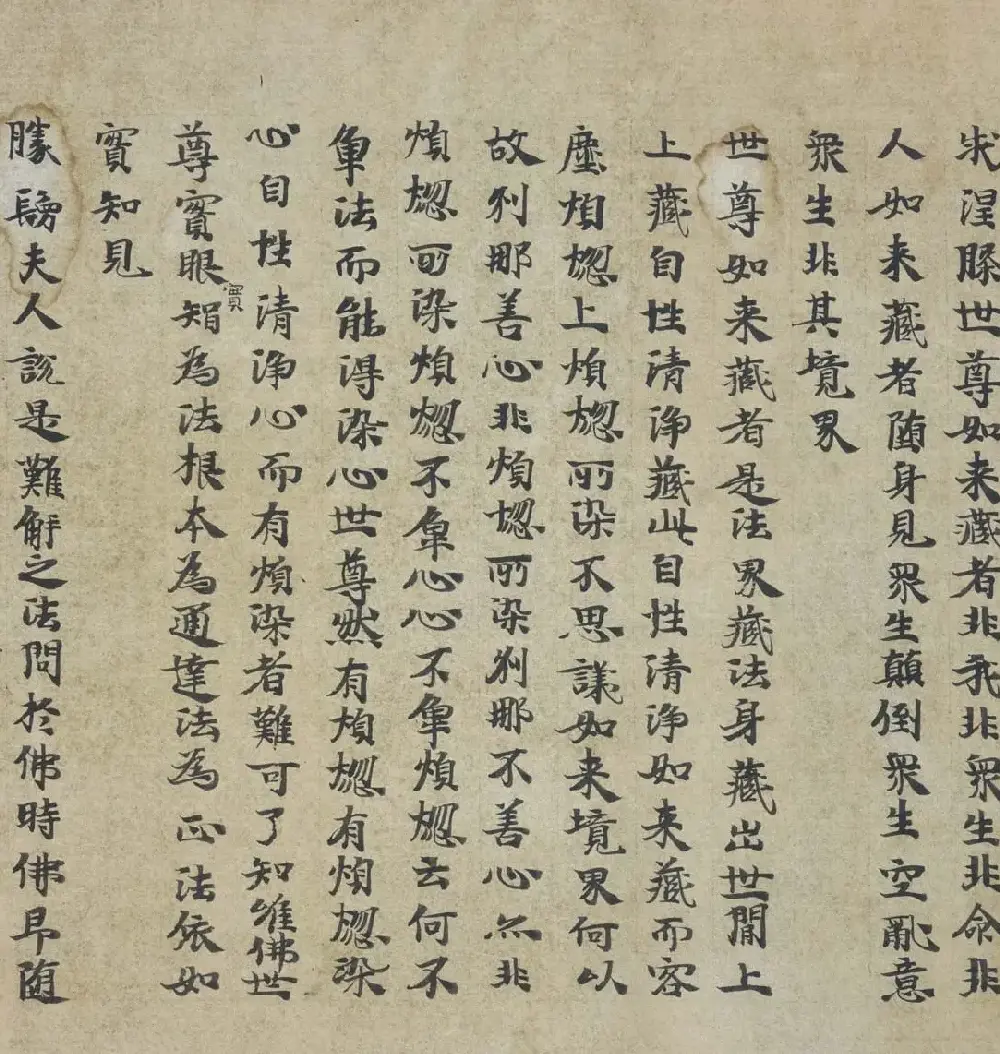 求涅槃世尊如来藏者非我非衆生非命非
人如来藏者随身見衆生顛倒衆生空亂意
衆生非其境界
世尊如来藏者是法界藏法身藏出世間上
上藏自性清浄藏此自性清浄如来藏而容
塵煩惱上煩惱所染不思議如来境界何以
故刹那善心非煩惱所染刹那不善心亦非
煩惱所染煩惱不觸心心不觸煩惱云何不
觸法而能得染心世尊然有煩惱有煩惱染
心自性清浄心而有煩染者難可了知唯佛世
尊實眼實智為法根本為通達法為正法依如
實知見
勝鬘夫人説是難解之法問於佛時佛即随